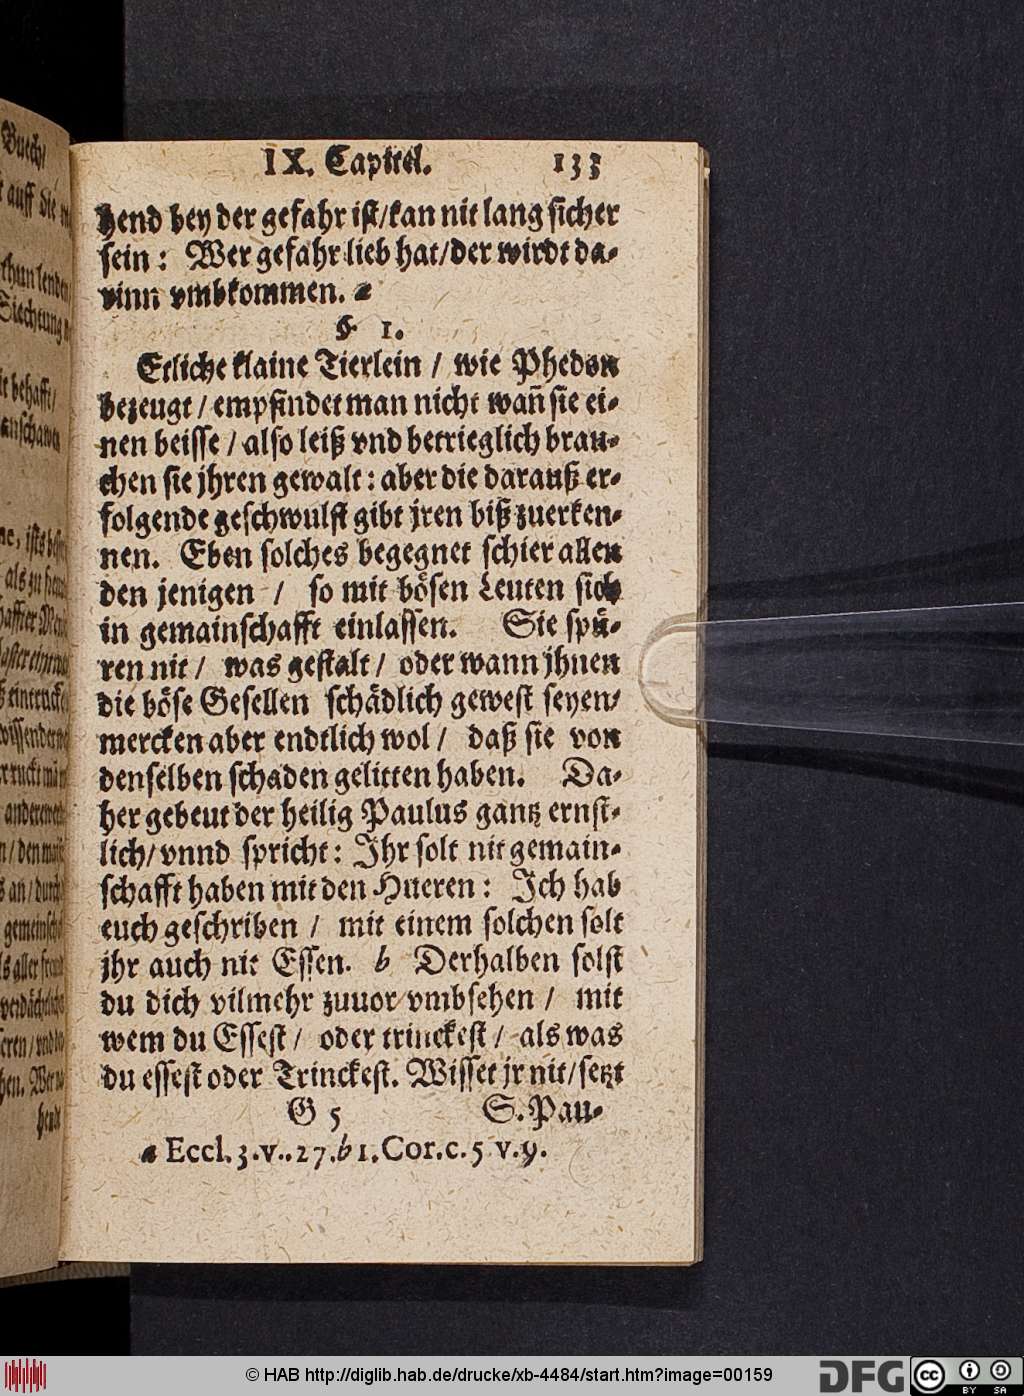 IX. Capitel. 133
hend bey der gefahr ist/kan nit lang sicher
sein: Wer gefahr lieb hat/der wirdt da-
rinn vmbkommen. a
§ 1.
Etliche klaine Tierlein / wie Phedon
bezeugt / empfindet man nicht wañ sie ei-
nen beisse / also leiß vnd betrieglich brau-
chen sie jhren gewalt: aber die darauß er-
folgende geschwulst gibt jren biß zuerken-
nen. Eben solches begegnet schier allen
den jenigen / so mit bösen Leuten sich
in gemainschafft einlassen. Sie spü-
ren nit / was gestalt / oder wann jhnen
die böse Gesellen schädlich gewest seyen/
mercken aber endtlich wol / daß sie von
denselben schaden gelitten haben. Da-
her gebeut der heilig Paulus gantz ernst-
lich/ vnnd spricht: Jhr solt nit gemain-
schafft haben mit den Hueren: Jch hab
euch geschriben / mit einem solchen solt
jhr auch nit Essen. b Derhalben solst
du dich vilmehr zuuor vmbsehen / mit
wem du Essest / oder trinckest / als was
du essest oder Trinckest. Wisset jr nit/setzt
G 5 S. Pau-
a Eccl. 3. v.. 27. b 1. Cor. c. 5 v. 9.
Buech/
auff die
behafft/
anschawen
hendt
© HAB http://diglib.hab.de/drucke/xb-4484/start.htm?image=00159
DFG
cc
BY SA